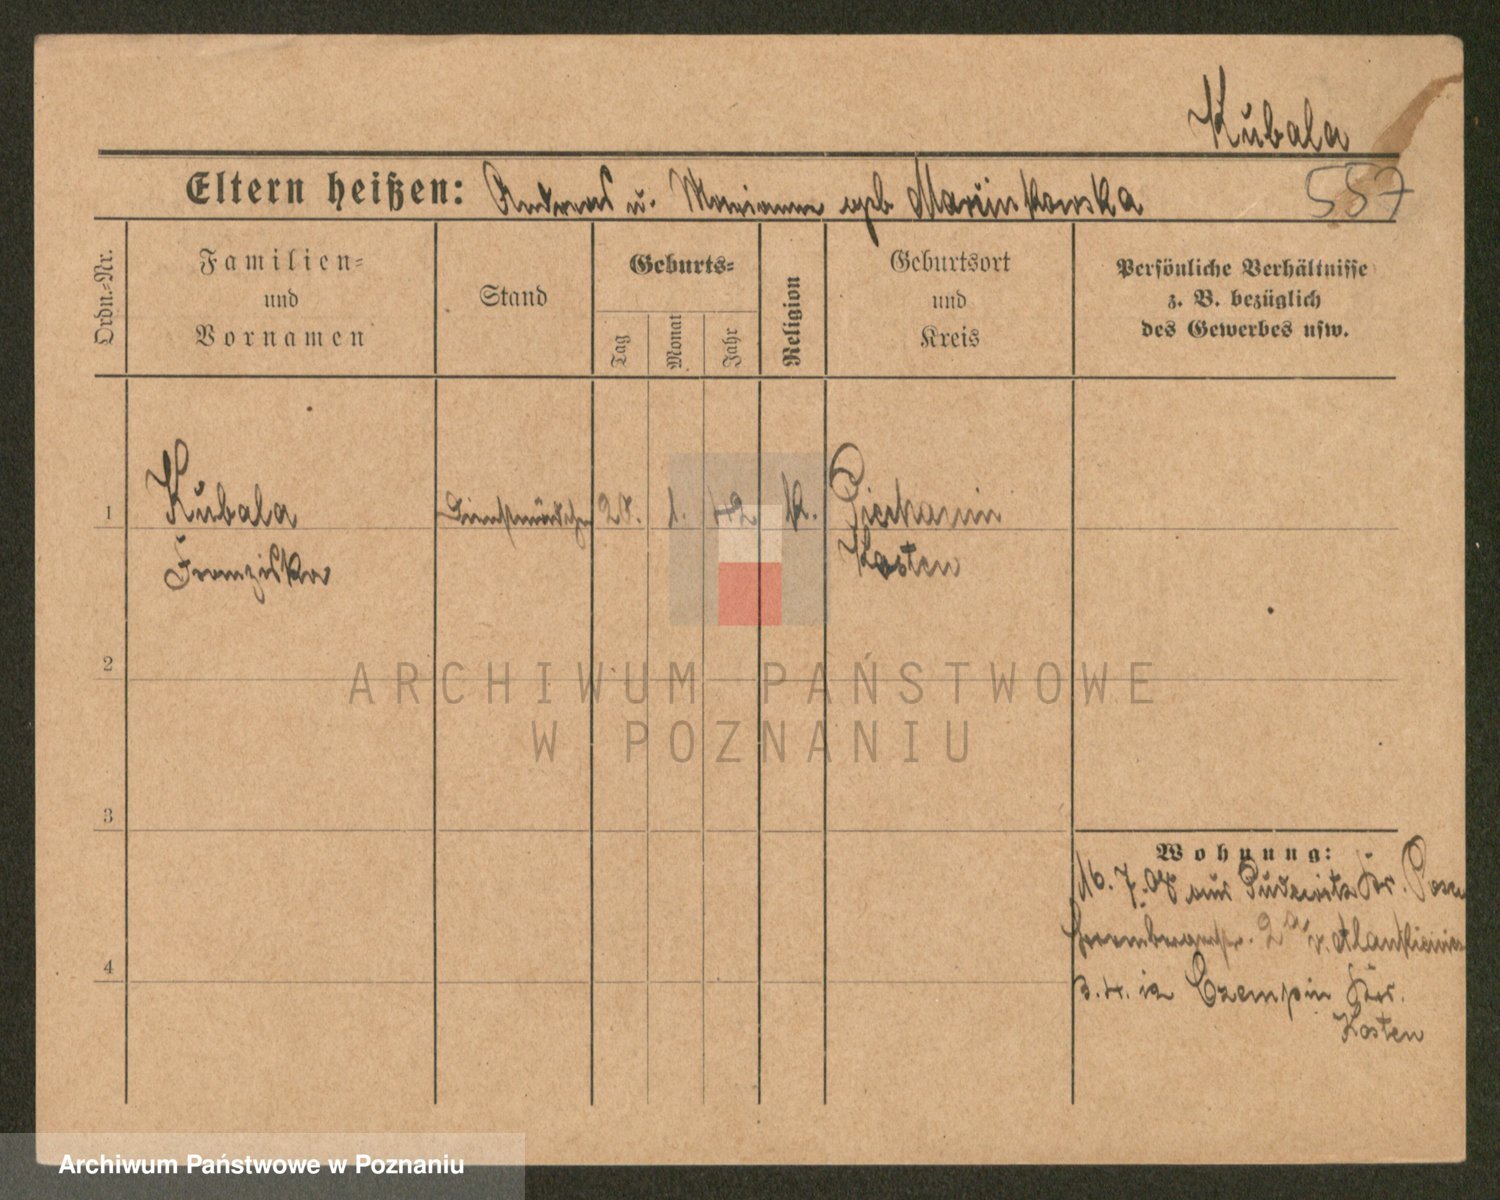 Kubala
Eltern heißen: Andreas u. Marianna geb Marcinkowska
557
Ordn.-Nr.
Familien-
und
Vornamen
Stand
Geburts-
Tag
Monat
Jahr
Religion
Geburtsort
und
Kreis
Persönliche Verhältnisse
z. B. bezüglich
des Gewerbes usw.
1 Kubala Dienstmädchen 28. 1. 42 k. Piechanin
Franziska Kosten
2
ARCHIWUM PAŃSTWOWE
W POZNANIU
3
Wohnung:
16. 7. 08 aus Pudewitz Kr. Posen
2a v.
4
Czempin Krs.
Kosten
Archiwum Państwowe w Poznaniu